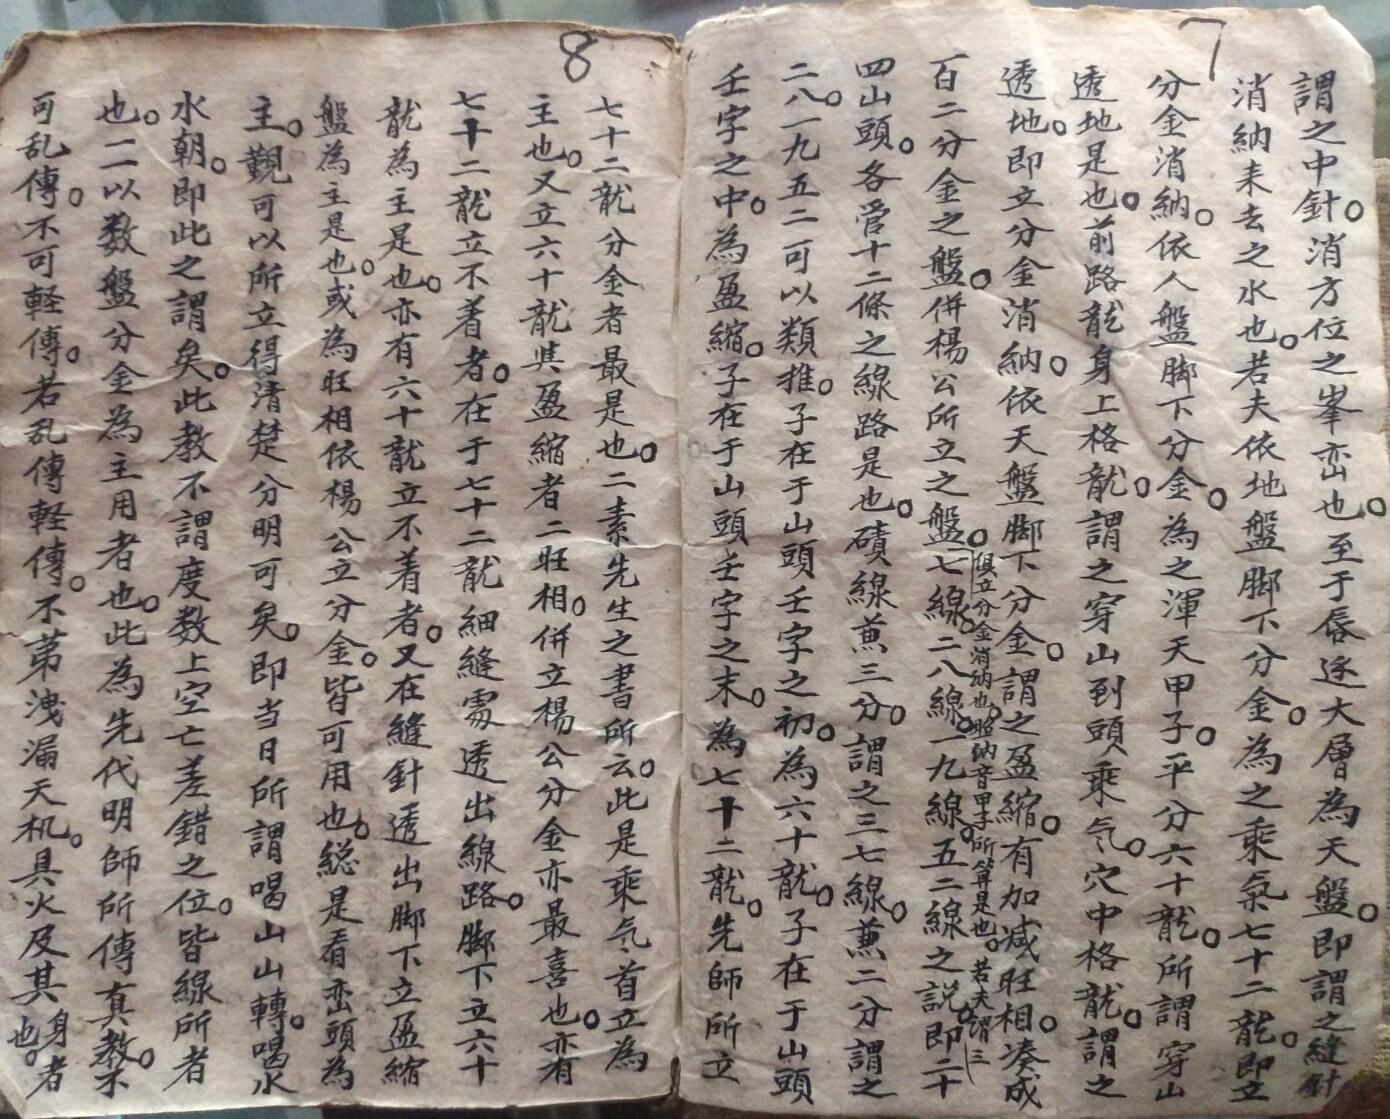 7
謂之中針。消方位之峯峦也。至于唇逐大層為天盤。即謂之縫針
消納来去之水也。若夫依地盤脚下分金。為之乘氣七十二龍。即立
分金消納。依人盤脚下分金。為之渾天甲子。平分六十龍。所謂穿山
透地是也。前路龍身上格龍。謂之穿山到頭乘气。穴中格龍。謂之
透地。即立分金消納。依天盤脚下分金。謂之盈縮。有加减旺相。湊成
俱立分金消納也。照納音甲子所算是也。若夫謂三
百二分金之盤。併楊公所立之盤。七線。二八線。一九線。五二線之説。即二十
四山頭。各管十二條之線路是也。磧線兼三分。謂之三七線。兼二分謂之
二八。一九五二可以類推。子在于山頭壬字之初。為六十龍。子在于山頭
壬字之中。為盈縮。子在于山頭壬字之末。為七十二龍。先師所立
8
七十二龍分金者最是也。二素先生之書所云。此是乘气首立為
主也。又立六十龍與盈縮者二旺相。併立楊公分金亦最喜也。亦有
七十二龍立不着者。在于七十二龍細縫處透出線路。脚下立六十
龍為主是也。亦有六十龍立不着者。又在縫針透出脚下立盈縮
盤為主是也。或為旺相依楊公立分金。皆可用也。総是看峦頭為
主。觀可以所立得清楚分明可矣。即當日所謂喝山山轉。喝水
水朝。即此之謂矣。此教不謂度数上空亡差錯之位。皆線所者
也。二以数盤分金為主用者也。此為先代明師所傳真教。不
可乱傳。不可軽傳。若乱傳軽傳。不苐洩漏天机。具火及其身者
也。